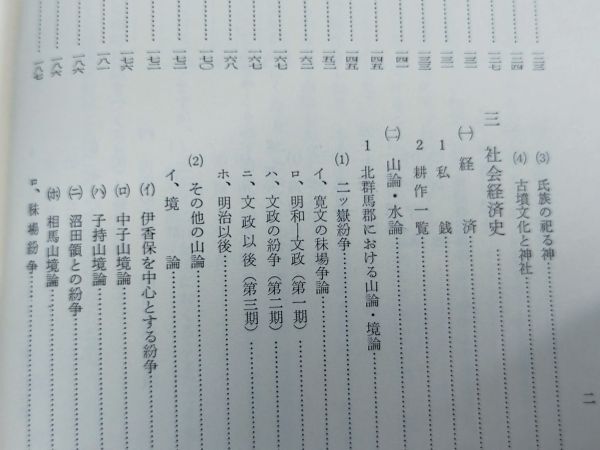 一二三
一二四
一二七
一三一
一三一
一三三
一四一
一四五
一四五
一六二
一六七
一六七
一六八
一七〇
一七二
一七二
一七六
一八一
一八六
一八六
一八七
⑶ 氏族の祀る神
⑷ 古墳文化と神社
三 社会経済史
㈠ 経済
1 私銭
2 耕作一覧
㈡ 山論・水論
1 北群馬郡における山論・境論
⑴ 二ッ嶽紛争
イ、寛文の秣場争論
ロ、明和―文政(第一期)
ハ、文政の紛争(第二期)
ニ、文政以後(第三期)
ホ、明治以後
⑵ その他の山論
イ、境論
(イ) 伊香保を中心とする紛争
(ロ) 中子山境論
(ハ) 子持山境論
(ニ) 沼田領との紛争
(ホ) 相馬山境論
ロ、秣場紛争
二